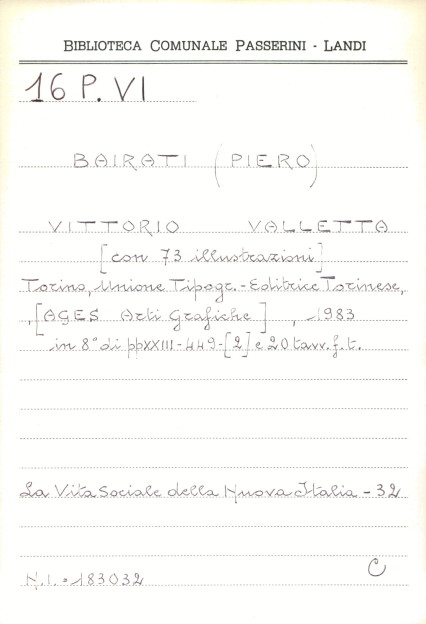 BIBLIOTECA COMUNALE PASSERINI - LANDI
16 P. VI
BAIRATI (PIERO)
VITTORIO VALLETTA
[con 73 illustrazioni]
Torino, Unione Tipogr.-Editrice Torinese,
,[AGES Arti Grafiche], 1983
in 8° di ppXXIII-449-[2] e 20 tavv. f. t.
La Vita Sociale della Nuova Italia - 32
C
N.I. 183032